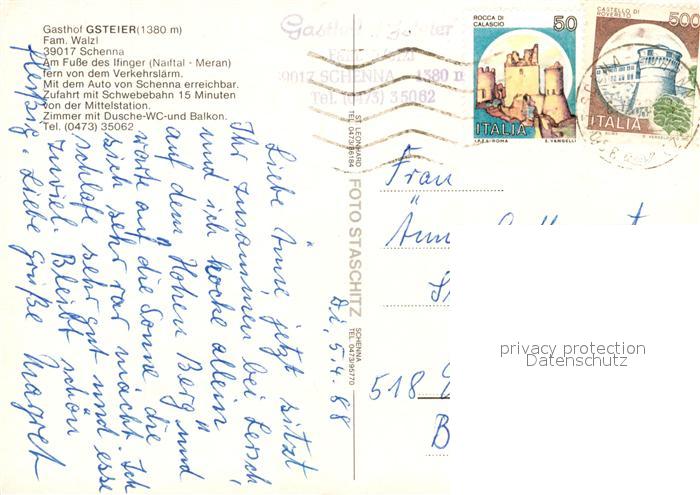 Gasthof GSTEIER (1380 m)
Fam. Walzl
39017 Schenna
Am Fuße des Ifinger (Naiftal - Meran)
fern von dem Verkehrslärm.
Mit dem Auto von Schenna erreichbar.
Zufahrt mit Schwebebahn 15 Minuten
von der Mittelstation.
Zimmer mit Dusche-WC-und Balkon.
Tel. (0473) 35062
Gasthof Gsteier
39017 SCHENNA 1380 m
Tel. (0473) 35062
ROCCA DI
CALASCIO
50
ITALIA
I.P.Z.S. ROMA E. VANGELLI
CASTELLO DI
ROVERETO
500
ITALIA
E. VANGELLI
Di, 5.4.88
Liebe Änne, jetzt sitzt
Ihr zusammen bei Lersch,
und ich hocke allein
auf dem Hohen Berg und
warte auf die Sonne die
sich sehr rar macht. Ich
schlafe sehr gut und esse
zuviel. Bleibt schön
fleißig. Liebe Grüße Margret
ST. LEONHARD
TEL. 0473/86184
FOTO STASCHITZ
SCHENNA
TEL. 0473/95770
Frau
Änn
518
B
privacy protection
Datenschutz